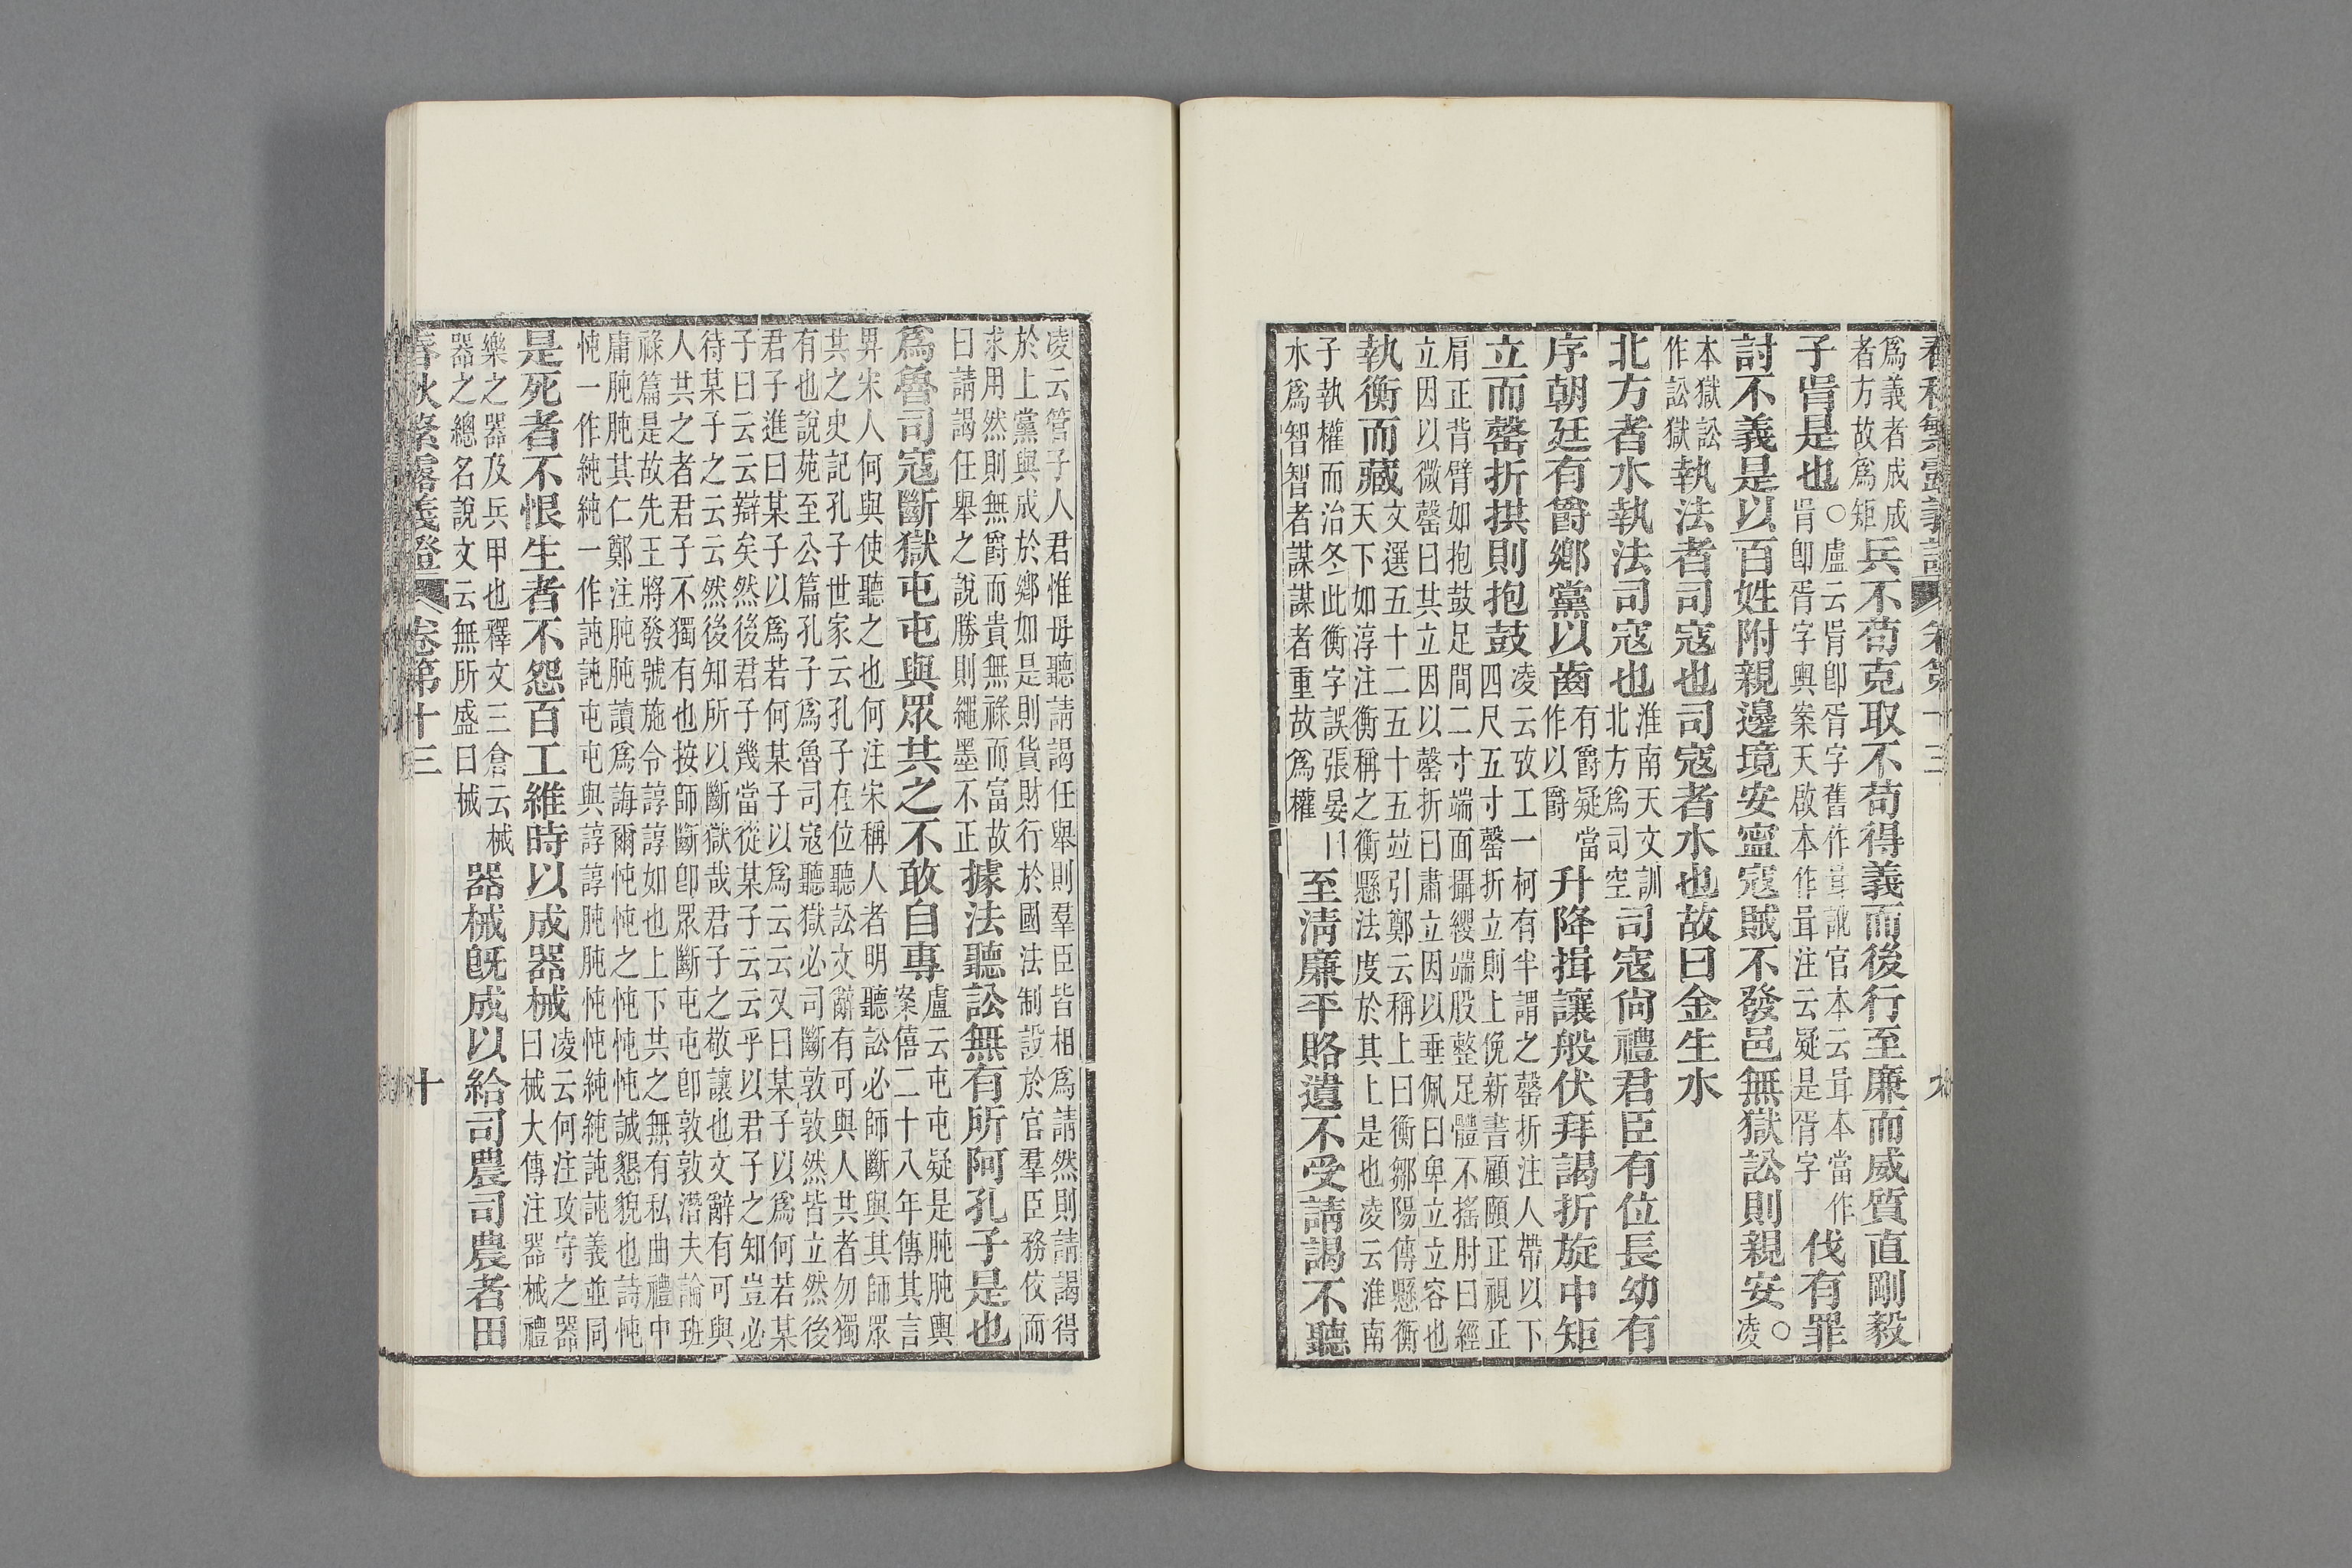 春秋繁露義證 卷第十三 九
爲義者成成
者方故爲矩
兵不苟克取不苟得義而後行至廉而威質直剛毅
子胥是也
○盧云胥卽胥字舊作咠訛官本云咠本當作
胥卽胥字輿案天啟本作咠注云疑是胥字
伐有罪
討不義是以百姓附親邊境安寧寇賊不發邑無獄訟則親安
○凌
本獄訟
作訟獄
執法者司寇也司寇者水也故曰金生水
北方者水執法司寇也
淮南天文訓
北方爲司空
司寇尙禮君臣有位長幼有
序朝廷有爵鄉黨以齒
有爵疑當
作以爵
升降揖讓般伏拜謁折旋中矩
立而罄折拱則抱鼓
凌云攷工一柯有半謂之罄折注人帶以下
四尺五寸罄折立則上俛新書顧頤正視正
肩正背臂如抱鼓足間二寸端面攝纓端股整足體不搖肘曰經
立因以微罄曰共立因以罄折曰肅立因以垂佩曰卑立立容也
執衡而藏
文選五十二五十五竝引鄭云稱上曰衡鄒陽傳懸衡
天下如淳注衡稱之衡懸法度於其上是也凌云淮南
子執權而治冬此衡字誤張晏曰
水爲智智者謀謀者重故爲權
至清廉平賂遺不受請謁不聽
凌云管子人君惟毋聽請謁任舉則羣臣皆相爲請然則請謁得
於上黨與成於鄉如是則貨財行於國法制設於官羣臣務佼而
求用然則無爵而貴無祿而富故
曰請謁任舉之說勝則繩墨不正
據法聽訟無有所阿孔子是也
爲魯司寇斷獄屯屯與眾共之不敢自專
盧云屯屯疑是肫肫輿
案僖二十八年傳其言
畀宋人何與使聽之也何注宋稱人者明聽訟必師斷與其師眾
共之史記孔子世家云孔子在位聽訟文辭有可與人共者勿獨
有也說苑至公篇孔子爲魯司寇聽獄必司斷敦敦然皆立然後
君子進曰某子以爲若何某子以爲云云又曰某子以爲何若某
子曰云云辯矣然後君子幾當從某子云云乎以君子之知豈必
待某子之云云然後知所以斷獄哉君子之敬讓也文辭有可與
人共之者君子不獨有也按師斷卽眾斷屯屯卽敦敦潛夫論班
祿篇是故先王將發號施令諄諄如也上下共之無有私曲禮中
庸肫肫其仁鄭注肫肫讀爲誨爾忳忳之忳忳忳誠懇貌也詩忳
忳一作純純一作訰訰屯屯與諄諄肫肫忳忳純純訰訰義並同
是死者不恨生者不怨百工維時以成器械
凌云何注攻守之器
曰械大傳注器械禮
樂之器及兵甲也釋文三倉云械
器之總名說文云無所盛曰械
器械旣成以給司農司農者田
春秋繁露義證 卷第十三 十